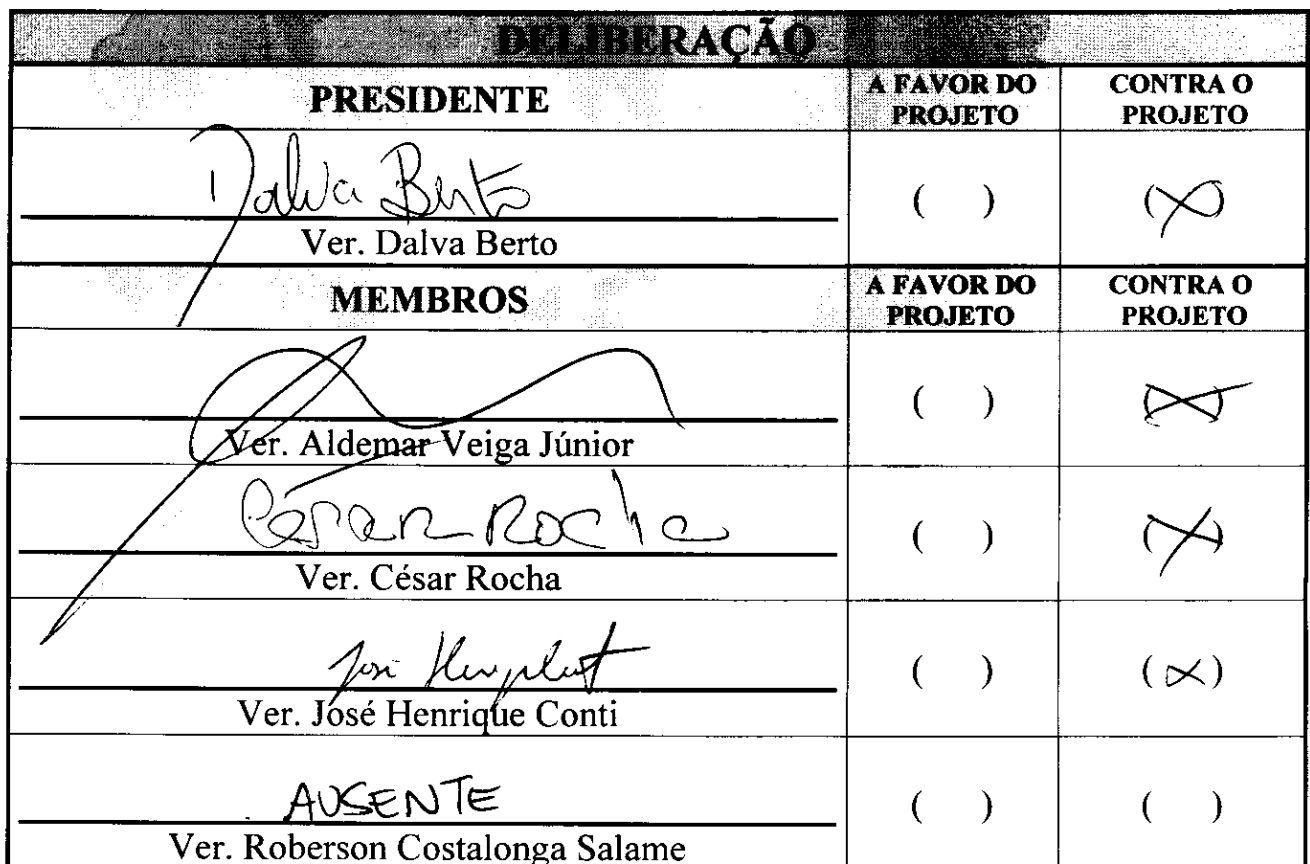 DELIBERAÇÃO
PRESIDENTE
A FAVOR DO PROJETO
CONTRA O PROJETO
Dalva Berto
( )
(X)
Ver. Dalva Berto
MEMBROS
A FAVOR DO PROJETO
CONTRA O PROJETO
( )
(X)
Ver. Aldemar Veiga Júnior
César Rocha
( )
(X)
Ver. César Rocha
José
( )
(X)
Ver. José Henrique Conti
AUSENTE
( )
( )
Ver. Roberson Costalonga Salame